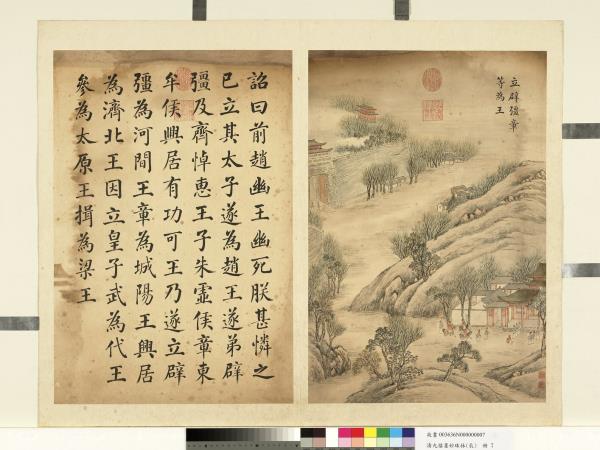 立辟彊章
等為王
詔曰前趙幽王幽死朕甚憐之
已立其太子遂為趙王遂弟辟
彊及齊悼惠王子朱虛侯章東
牟侯興居有功可王乃遂立辟
彊為河間王章為城陽王興居
為濟北王因立皇子武為代王
參為太原王揖為梁王
故畫 003636N000000007
冊 7